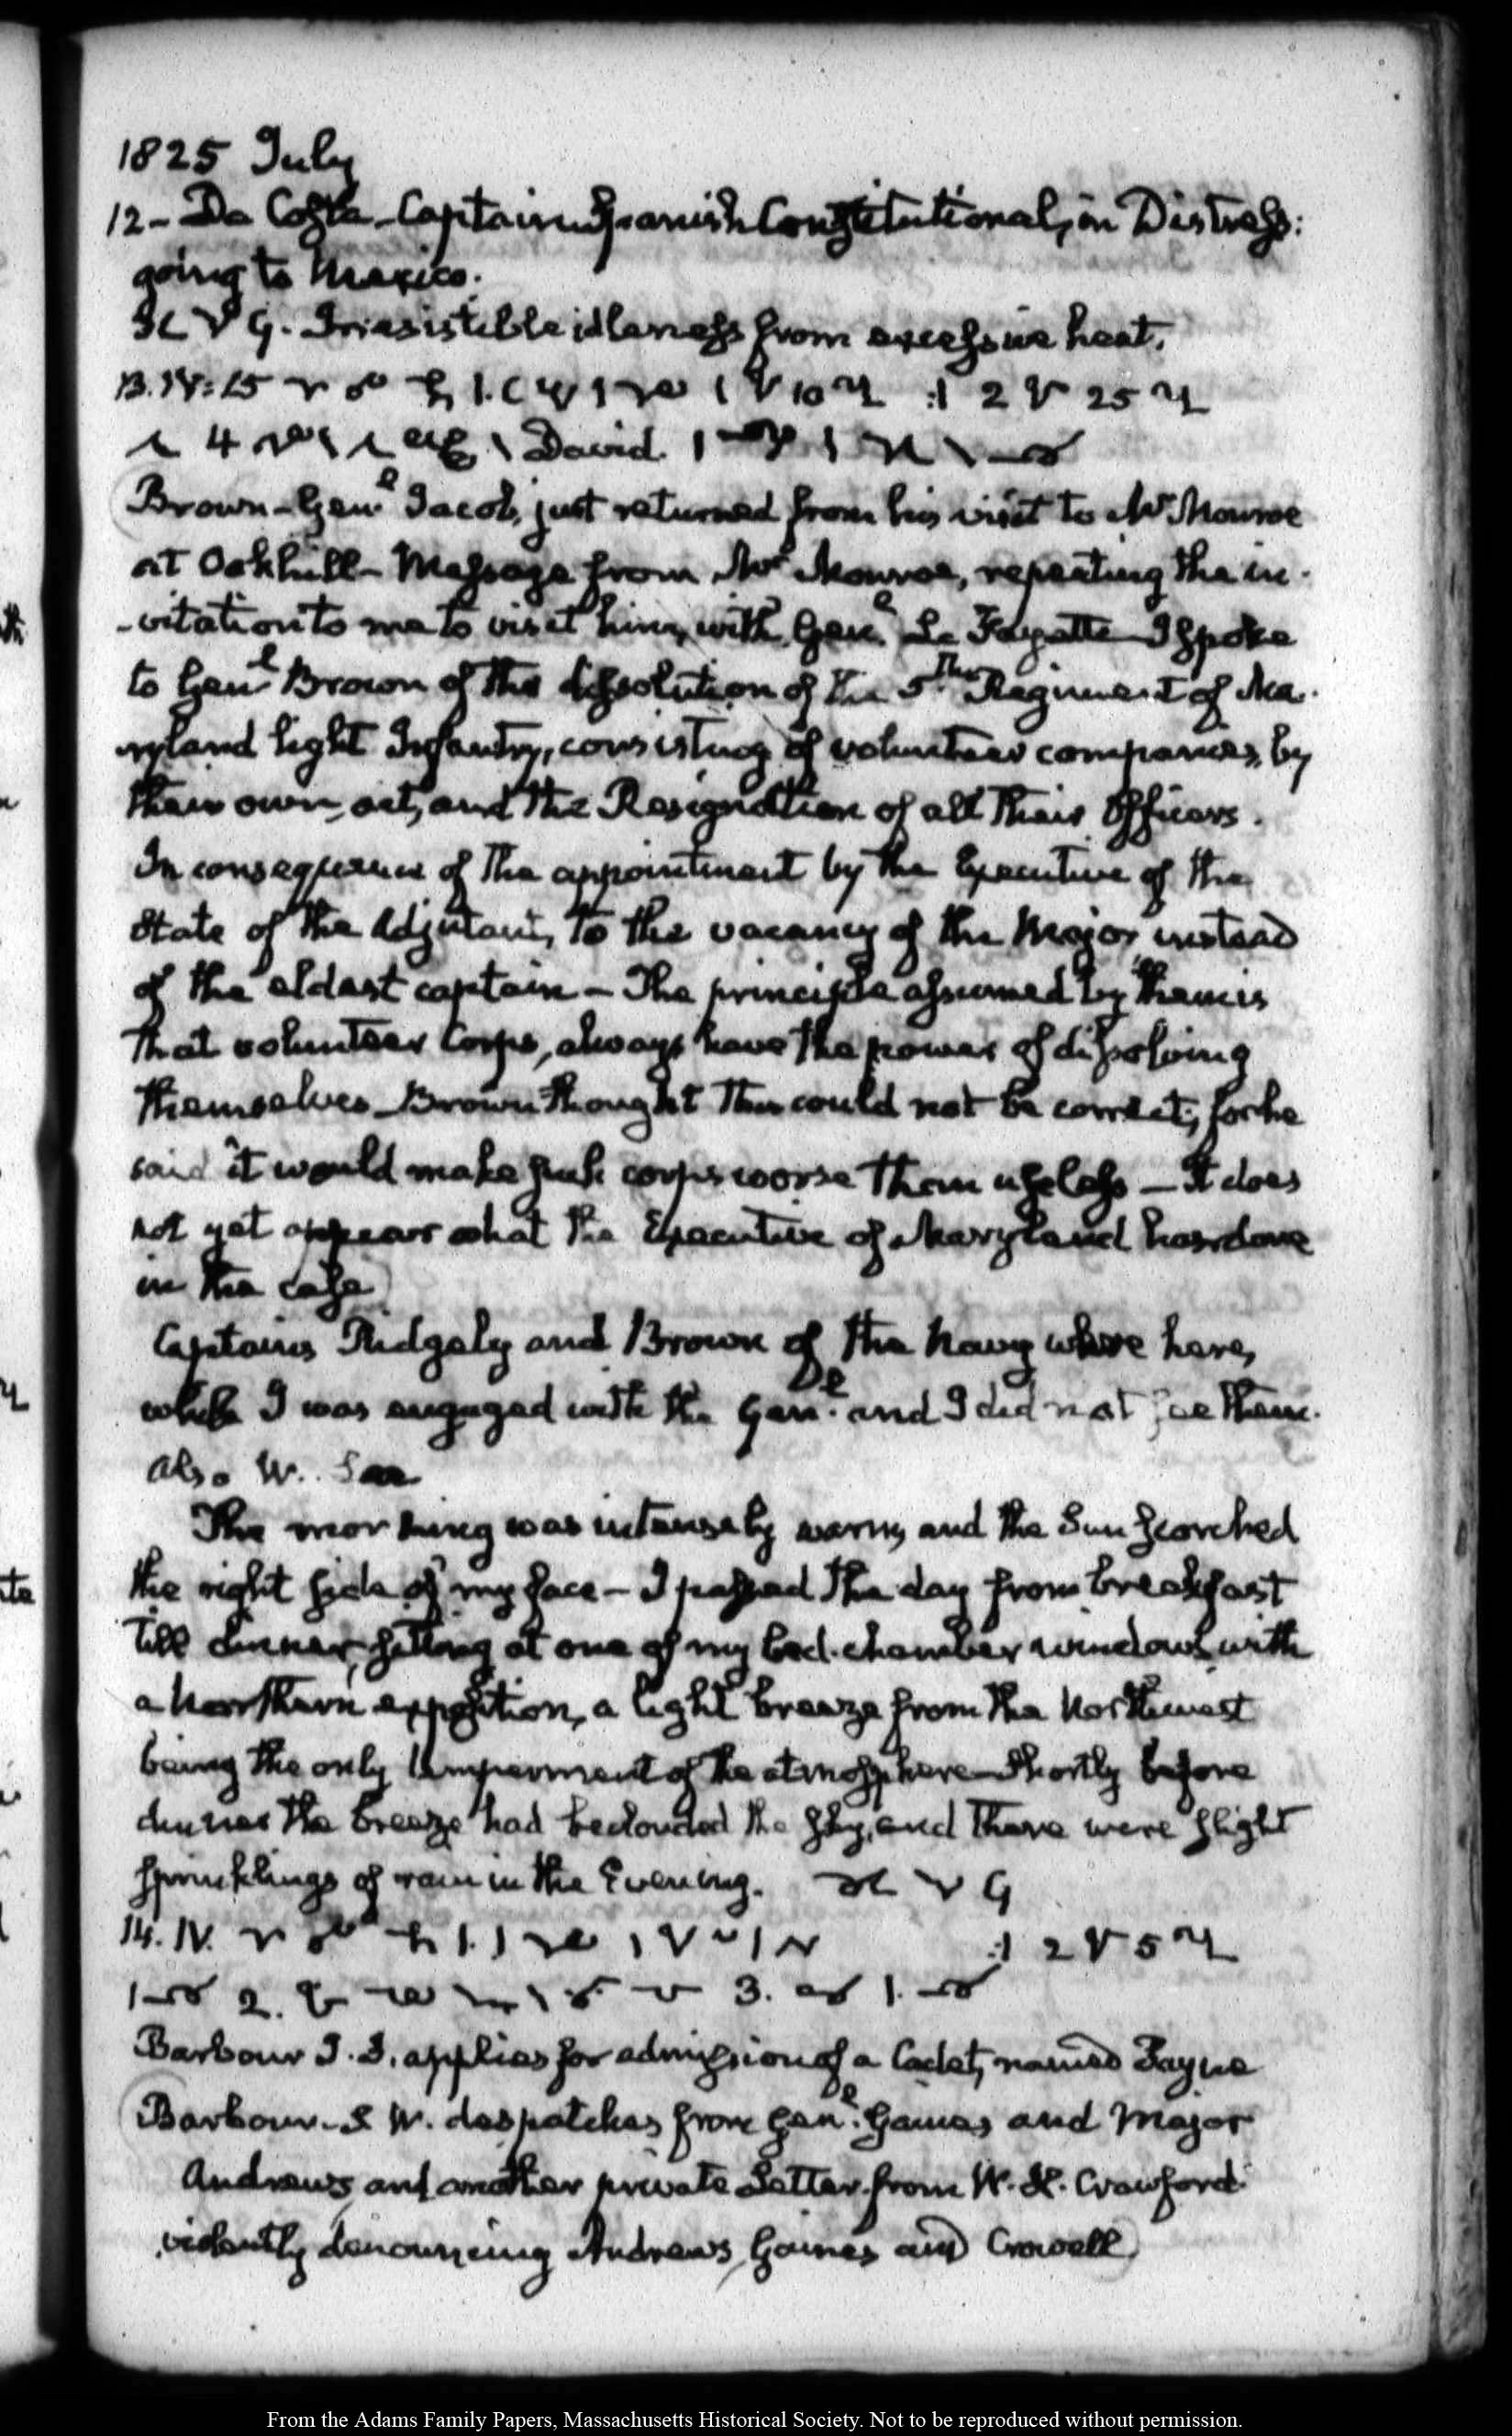 1825 July
12 - Da Costa - Captain Spanish Constitutional, in Distress:
going to Mexico.
Irresistible idleness from excessive heat.
13. IV:15
4 David.
Brown - Genl Jacob, just returned from his visit to Mr Monroe
at Oakhill - Message from Mr Monroe, repeating the in-
-vitation to me to visit him, with Genl La Fayette I spoke
to Genl Brown of the dissolution of the 5th Regiment of Ma-
ryland light Infantry, consisting of volunteer companies, by
their own act, and the Resignation of all their Officers.
In consequence of the appointment by the Executive of the
State of the Adjutant, to the vacancy of the Major instead
of the eldest captain - The principle assumed by them is
that volunteer Corps, always have the power of dissolving
themselves - Brown thought this could not be correct; for he
said it would make such corps worse than useless - It does
not yet appear what the Executive of Maryland has done
in the case
Captains Ridgely and Brown of the Navy where here,
while I was engaged with the Genl. and I did not see them.
also W. Lee
The morning was intensely warm, and the Sun scorched
the right side of my face - I passed the day from breakfast
till dinner, sitting at one of my bed-chamber windows with
a Northern exposition, a light breeze from the Northwest
being the only temperment of the atmosphere - Shortly before
dinner the breeze had beclouded the sky, and there were slight
sprinklings of rain in the Evening.
14. IV.
2. 3.
Barbour J. S. applies for admission of a Cadet, named Payne
Barbour - S W. despatches from Genl. Gaines and Major
Andrews, and another private Letter from W. H. Crawford.
violently denouncing Andrews, Gaines and Crowell
From the Adams Family Papers, Massachusetts Historical Society. Not to be reproduced without permission.